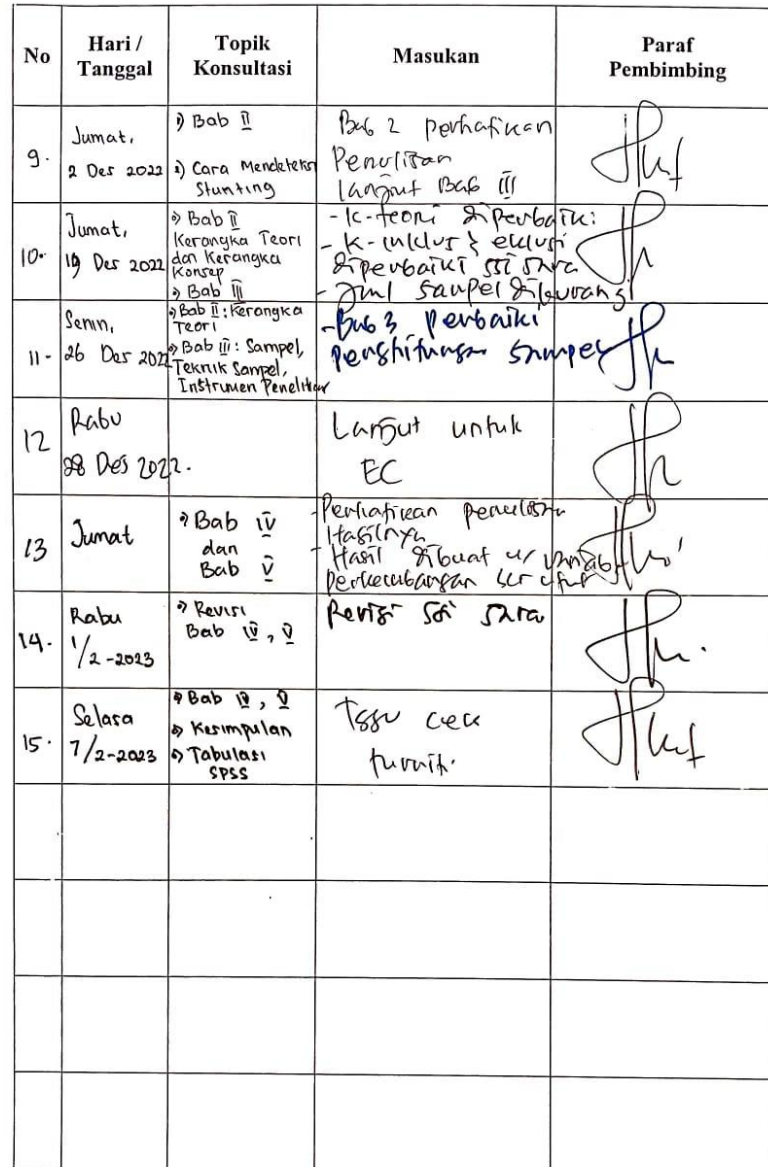 No
Hari / Tanggal
Topik Konsultasi
Masukan
Paraf Pembimbing
9.
Jumat,
2 Des 2022
Bab II
Cara Mendeteksi
Stunting
Bab 2 perhatikan
Penulisan
lanjut Bab III
10.
Jumat,
19 Des 2022
Bab II
Kerangka Teori
dan Kerangka
Konsep
Bab III
- K-teori diperbaiki
- K-inklusi & eklusi
diperbaiki ssi sara
- Jml sampel dikurangi
11-
Senin,
26 Des 2022
Bab II: Kerangka
Teori
Bab III: Sampel,
Teknik Sampel,
Instrumen Penelitian
- Bab 3 perbaiki
penghitungan sampel
12
Rabu
28 Des 2022.
Lanjut untuk
EC
13
Jumat
Bab IV
dan
Bab V
- Perhatikan penulisan
Hasilnya
- Hasil dibuat
perkembangan
14.
Rabu
1/2-2023
Revisi
Bab IV, V
Revisi ssi sara
15.
Selasa
7/2-2023
Bab IV, V
Kesimpulan
Tabulasi
SPSS
cek
turnit.